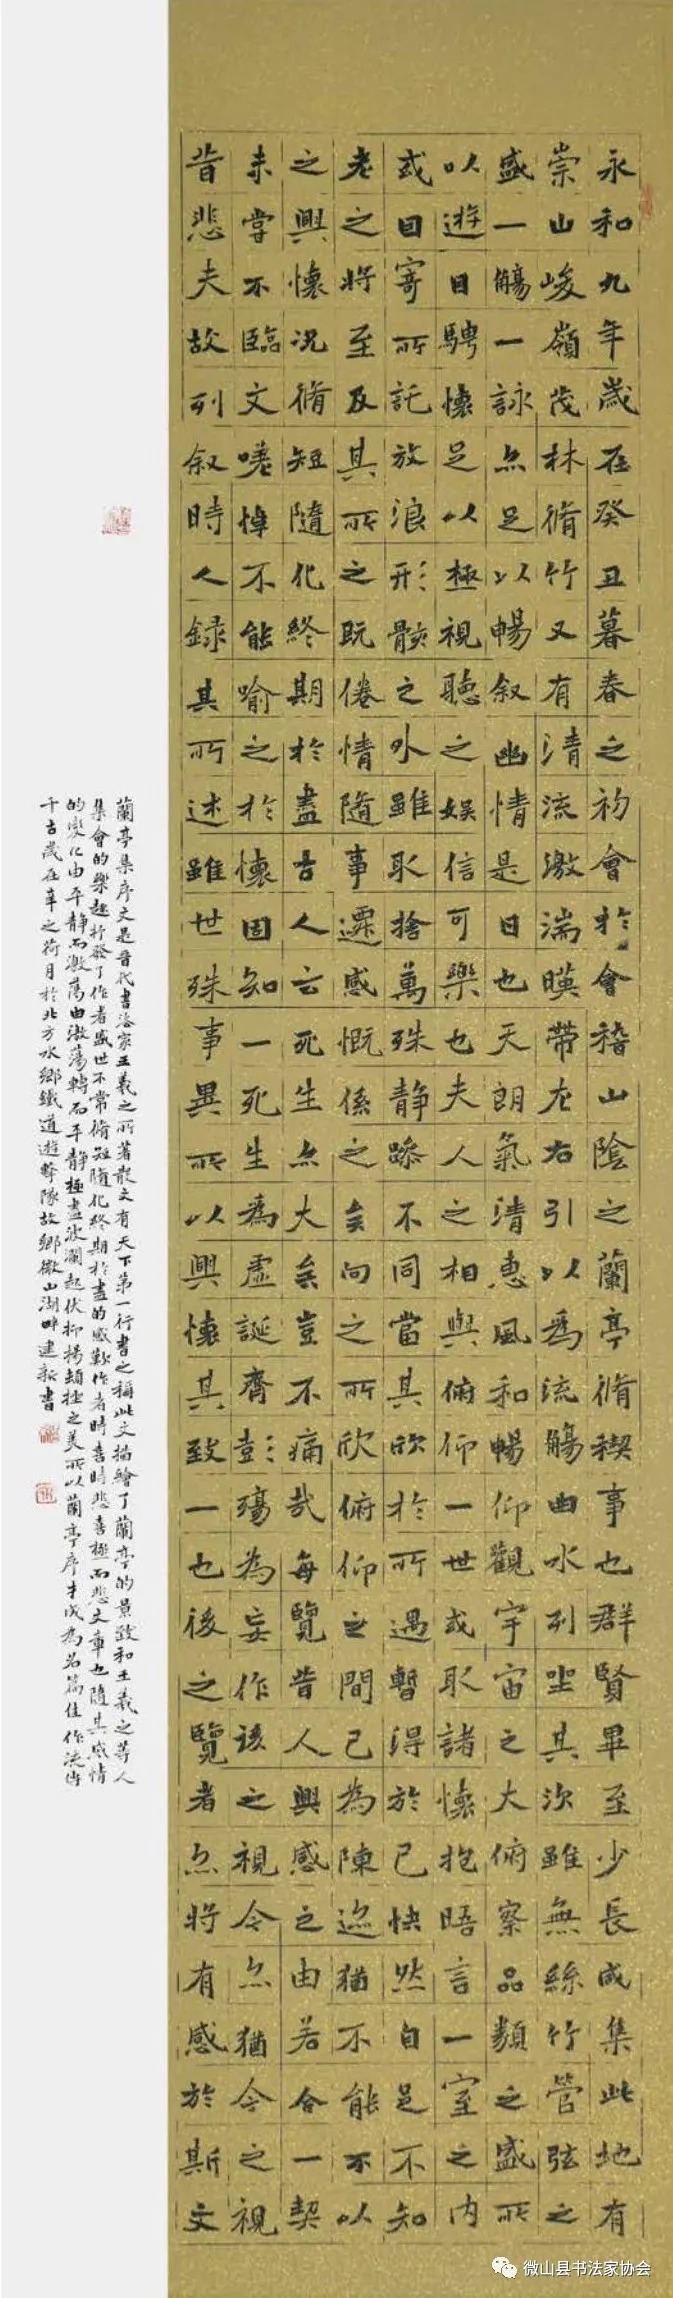 永和九年歲在癸丑暮春之初會於會稽山陰之蘭亭脩禊事也群賢畢至少長咸集此地有
崇山峻嶺茂林脩竹又有清流激湍暎帶左右引以為流觴曲水列坐其次雖無絲竹管弦之
盛一觴一詠亦足以暢叙幽情是日也天朗氣清惠風和暢仰觀宇宙之大俯察品類之盛所
以遊目騁懷足以極視聽之娛信可樂也夫人之相與俯仰一世或取諸懷抱晤言一室之內
或因寄所託放浪形骸之外雖取捨萬殊静躁不同當其欣於所遇暫得於己快然自足不知
老之將至及其所之既倦情隨事遷感慨係之矣向之所欣俯仰之間已為陳迹猶不能不以
之興懷況脩短隨化終期於盡古人云死生亦大矣豈不痛哉每覽昔人興感之由若合一契
未嘗不臨文嗟悼不能喻之於懷固知一死生為虛誕齊彭殤為妄作後之視今亦猶今之視
昔悲夫故列叙時人錄其所述雖世殊事異所以興懷其致一也後之覽者亦將有感於斯文
蘭亭集序文是晉代書法家王羲之所著散文有天下第一行書之稱此文描繪了蘭亭的景致和王羲之等人
集會的樂趣抒發了作者盛世不常脩短隨化終期於盡的感歎作者時喜時悲喜極而悲文章也隨其感情
的變化由平静而激蕩由激蕩轉而平静極盡波瀾起伏抑揚頓挫之美所以蘭亭序才成為名篇佳作流傳
千古歲在辛之荷月於北方水鄉鐵道遊擊隊故鄉微山湖畔建新書
微山县书法家协会